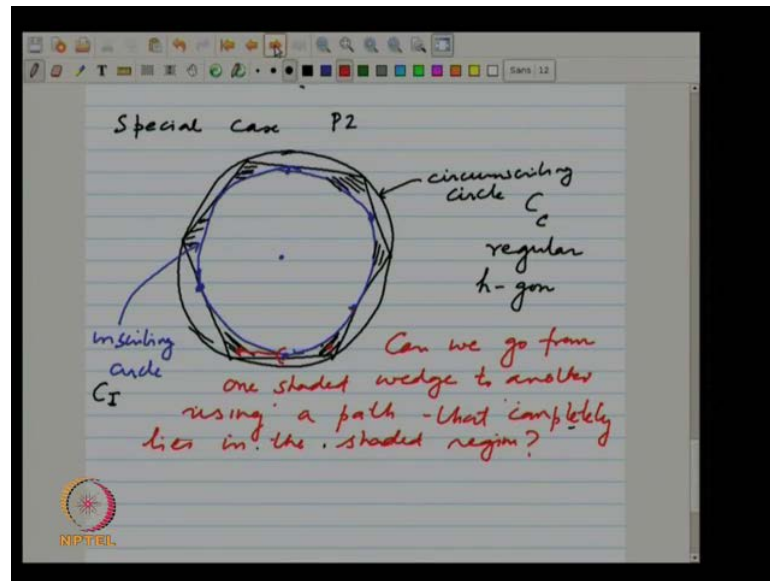 Sans 12
Special Case P2
circumscribing
circle C_c
regular
h-gon
inscribing
circle
C_I
Can we go from
one shaded wedge to another
using a path that completely
lies in the shaded region?
NPTEL